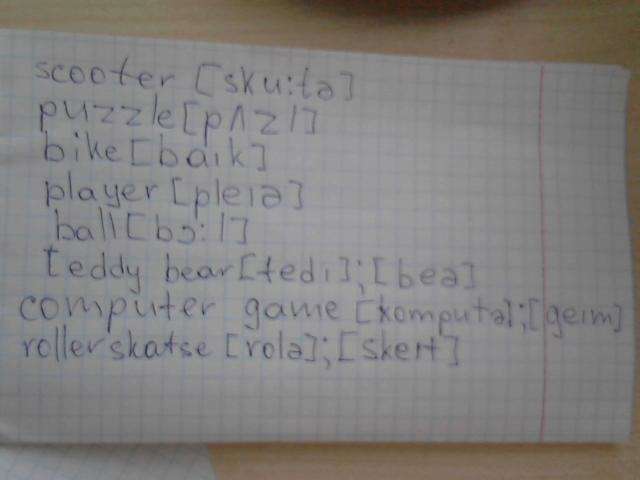 scooter [sku:tə]
puzzle [pʌzl]
bike [baık]
player [pleıə]
ball [bɔ:l]
teddy bear [tedı]; [beə]
computer game [komputə]; [geım]
roller skatse [rolə]; [skeıt]